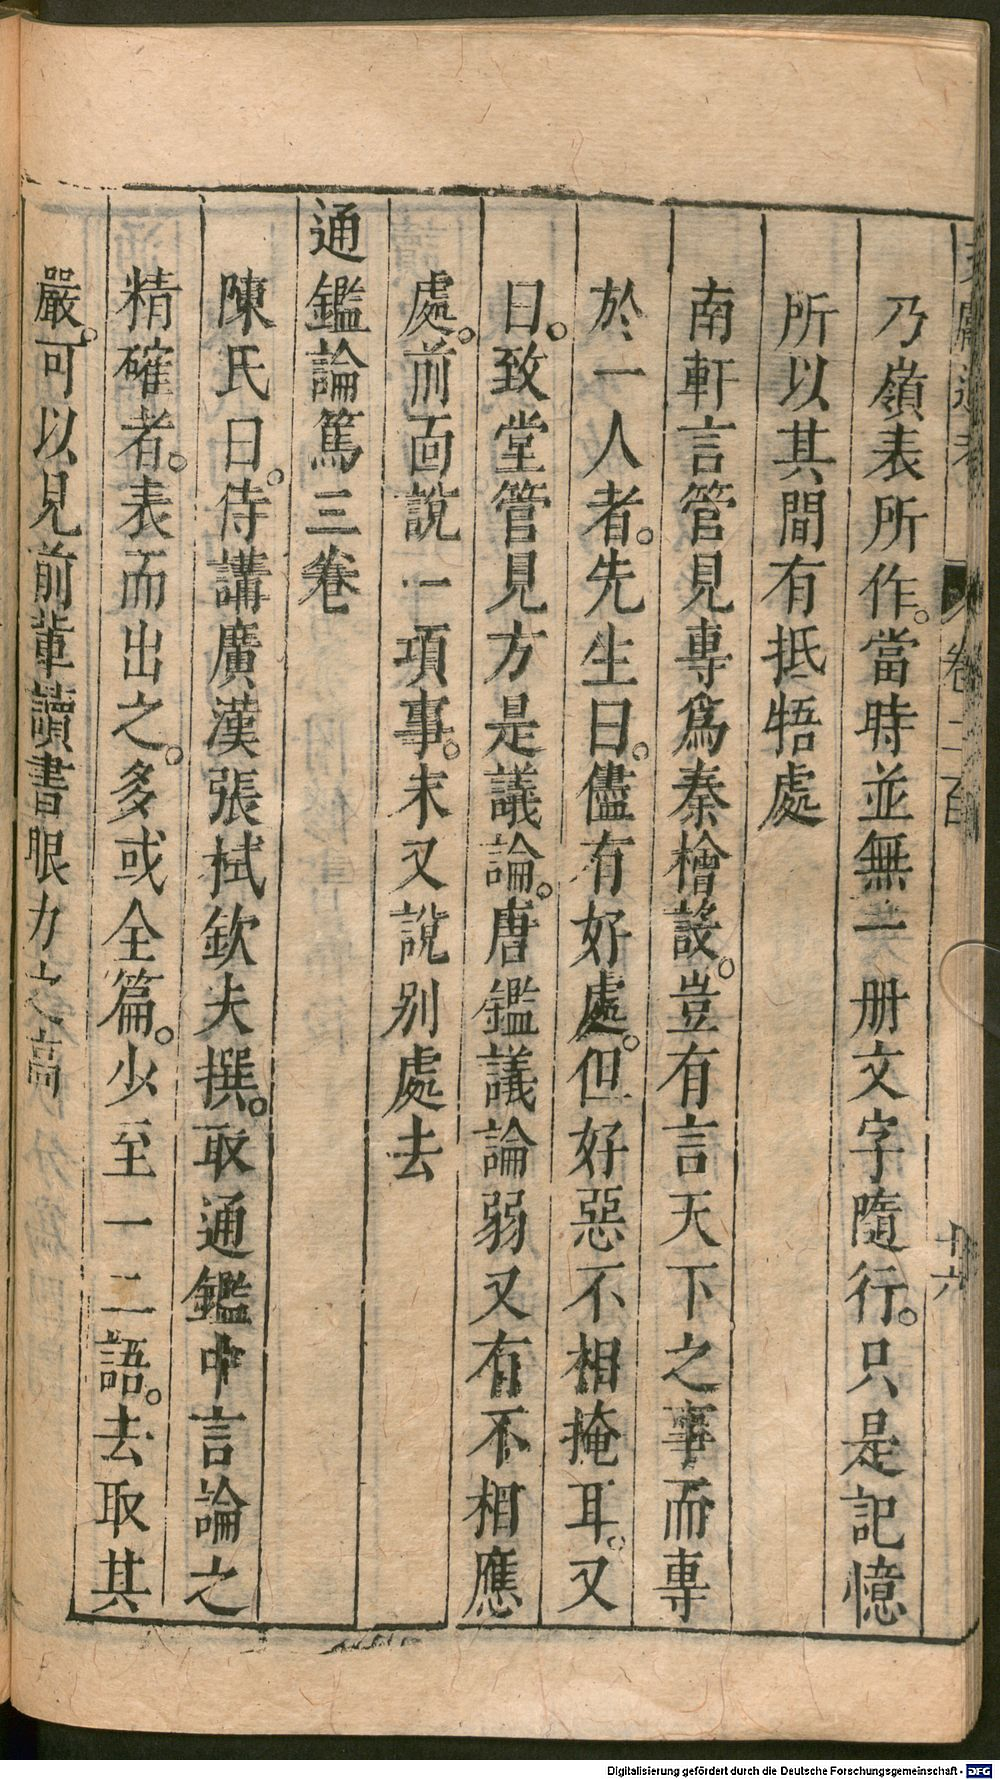 乃嶺表所作。當時並無一册文字隨行。只是記憶
所以其間有抵牾處
南軒言管見專爲秦檜設。豈有言天下之事而專
於一人者。先生曰。儘有好處。但好惡不相掩耳。又
曰。致堂管見方是議論。唐鑑議論弱又有不相應
處。前面說一項事。末又說別處去
通鑑論篤三卷
陳氏曰。侍講廣漢張栻欽夫撰。取通鑑中言論之
精確者。表而出之。多或全篇。少至一二語。去取其
嚴。可以見前輩讀書眼力之高
卷二百
十六
Digitalisierung gefördert durch die Deutsche Forschungsgemeinschaft - DFG